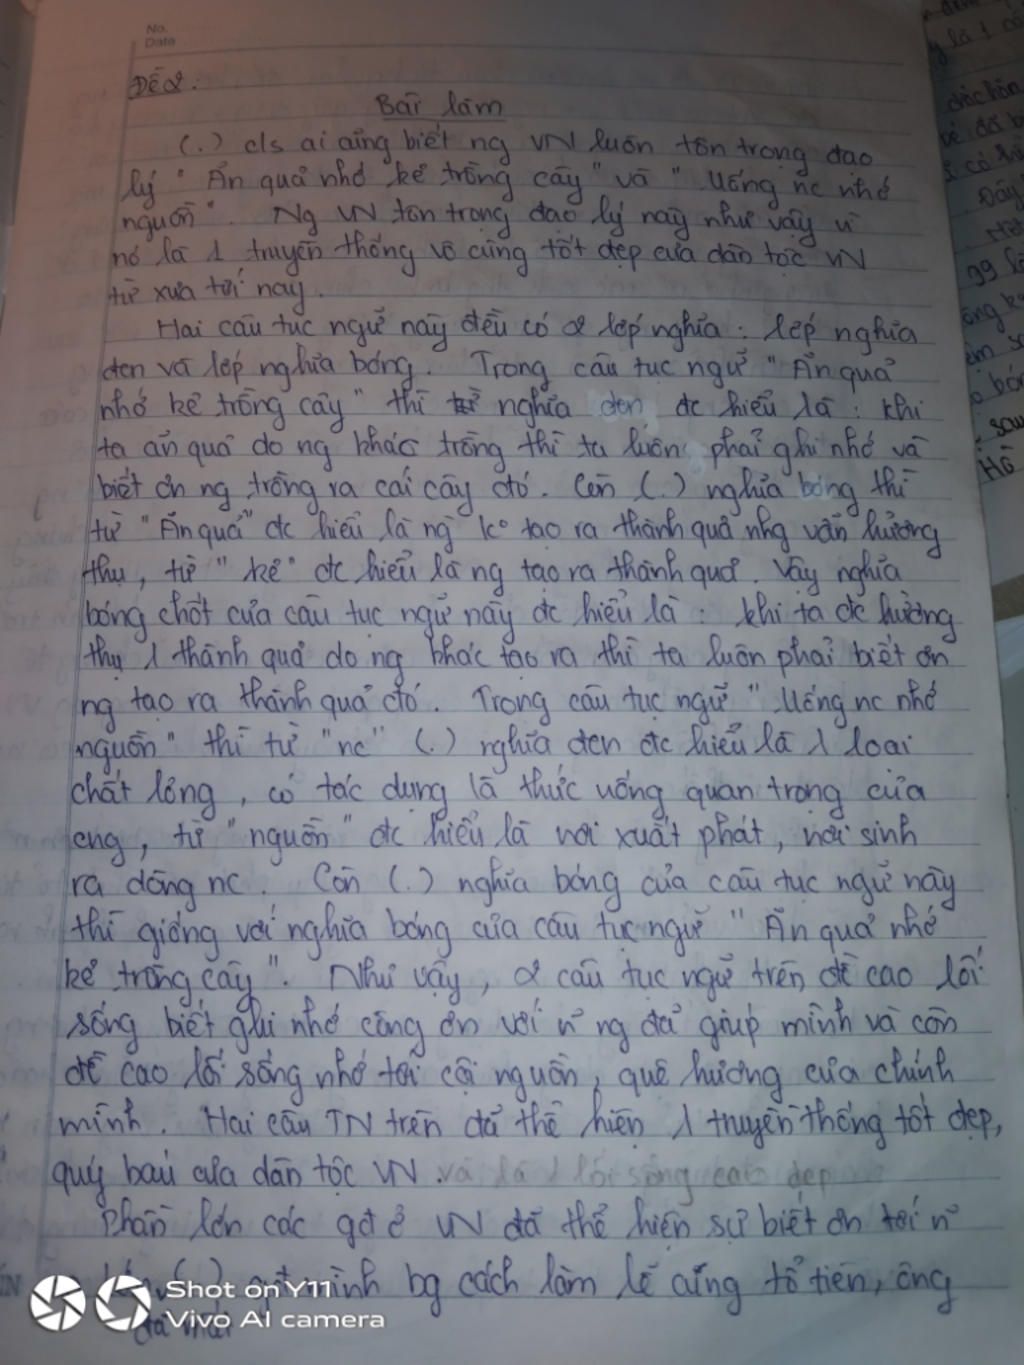 No.
Date
Đề 2:
Bài làm
(.) cls ai cũng biết ng VN luôn tôn trọng đạo
lý "Ăn quả nhớ kẻ trồng cây" và "Uống nc nhớ
nguồn". Ng VN tôn trọng đạo lý này như vậy vì
nó là 1 truyền thống vô cùng tốt đẹp của dân tộc VN
từ xưa tới nay.
Hai câu tục ngữ này đều có 2 lớp nghĩa: lớp nghĩa
đen và lớp nghĩa bóng. Trong câu tục ngữ "Ăn quả
nhớ kẻ trồng cây" thì nghĩa đen đc hiểu là: khi
ta ăn quả do ng khác trồng thì ta luôn phải ghi nhớ và
biết ơn ng trồng ra cái cây đó. Còn (.) nghĩa bóng thì
từ "Ăn quả" đc hiểu là ng kº tạo ra thành quả nhg vẫn hưởng
thụ, từ "kẻ" đc hiểu là ng tạo ra thành quả. Vậy nghĩa
bóng chốt của câu tục ngữ này đc hiểu là: khi ta đc hưởng
thụ 1 thành quả do ng khác tạo ra thì ta luôn phải biết ơn
ng tạo ra thành quả đó. Trong câu tục ngữ "Uống nc nhớ
nguồn" thì từ "nc" (.) nghĩa đen đc hiểu là 1 loại
chất lỏng, có tác dụng là thức uống quan trọng của
cng, từ "nguồn" đc hiểu là nơi xuất phát, nơi sinh
ra dòng nc. Còn (.) nghĩa bóng của câu tục ngữ này
thì giống với nghĩa bóng của câu tục ngữ "Ăn quả nhớ
kẻ trồng cây". Như vậy, 2 câu tục ngữ trên đề cao lối
sống biết ghi nhớ công ơn với n~ ng đã giúp mình và còn
đề cao lối sống nhớ tới cội nguồn, quê hương của chính
mình. Hai câu TN trên đã thể hiện 1 truyền thống tốt đẹp,
quý báu của dân tộc VN. và là 1 lối sống cao đẹp
Phần lớn các gđ ở VN đã thể hiện sự biết ơn tới n~
(.) gđ mình bg cách làm lễ cúng tổ tiên, ông
đã mất
Shot on Y11
Vivo AI camera